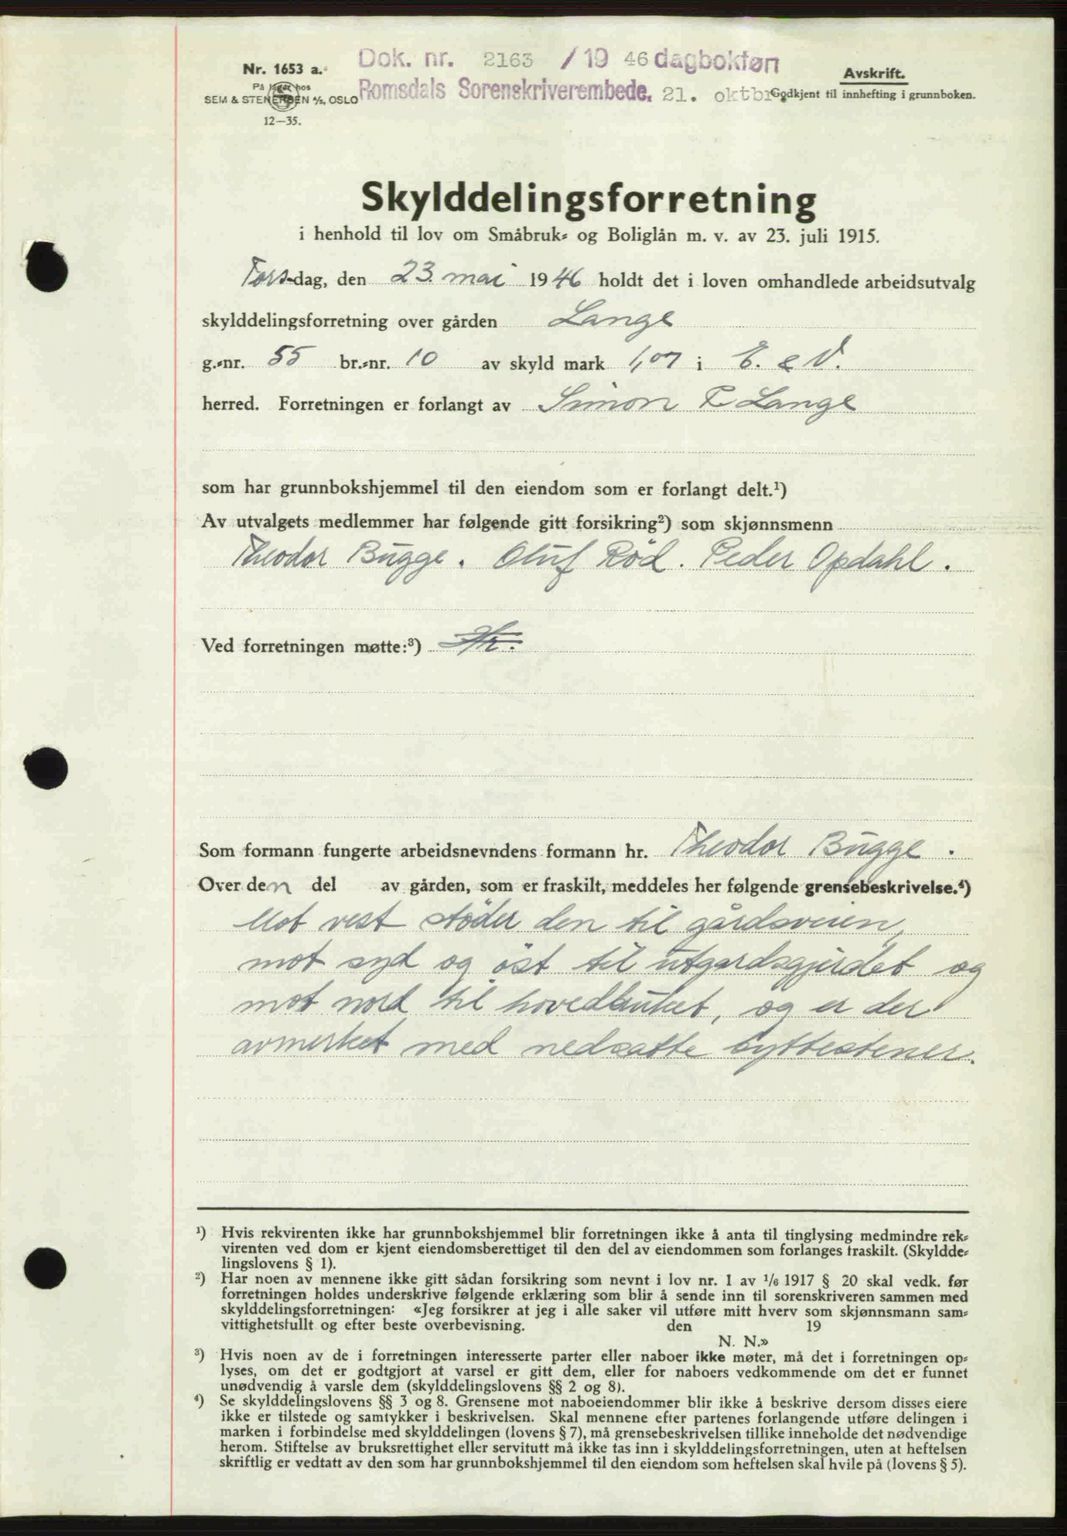 Nr. 1653 a.
På lager hos
SEM & STENERSEN A/S, OSLO
12—35.
Dok. nr. 2163 / 19 46 dagbokføn
Romsdals Sorenskriverembede, 21. oktbr.
Avskrift.
Godkjent til innhefting i grunnboken.
Skylddelingsforretning
i henhold til lov om Småbruk= og Boliglån m. v. av 23. juli 1915.
Torsdag, den 23. mai 1946 holdt det i loven omhandlede arbeidsutvalg
skylddelingsforretning over gården Lange
g.=nr. 55 br.=nr. 10 av skyld mark 1,07 i E. & V.
herred. Forretningen er forlangt av Simon T. Lange
som har grunnbokshjemmel til den eiendom som er forlangt delt.¹)
Av utvalgets medlemmer har følgende gitt forsikring²) som skjønnsmenn
Theodor Bugge. Oluf Röd. Peder Opdahl.
Ved forretningen møtte:³) Hr.
Som formann fungerte arbeidsnevndens formann hr. Theodor Bugge.
Over den del av gården, som er fraskilt, meddeles her følgende grensebeskrivelse.⁴)
Mot vest støder den til gårdsveien,
mot syd og öst til utgardsgjerdet og
mot nord til hovedbruket, og er der
avmerket med nedsatte byttestener.
¹) Hvis rekvirenten ikke har grunnbokshjemmel blir forretningen ikke å anta til tinglysing medmindre rek=
virenten ved dom er kjent eiendomsberettiget til den del av eiendommen som forlanges fraskilt. (Skyldde=
lingslovens § 1).
²) Har noen av mennene ikke gitt sådan forsikring som nevnt i lov nr. 1 av 1/6 1917 § 20 skal vedk. før
forretningen holdes underskrive følgende erklæring som blir å sende inn til sorenskriveren sammen med
skylddelingsforretningen: «Jeg forsikrer at jeg i alle saker vil utføre mitt hverv som skjønnsmann sam=
vittighetsfullt og efter beste overbevisning. den 19
N. N.»
³) Hvis noen av de i forretningen interesserte parter eller naboer ikke møter, må det i forretningen op=
lyses, om det er godtgjort at varsel er gitt dem, eller for naboers vedkommende om det er funnet
unødvendig å varsle dem (skylddelingslovens §§ 2 og 8).
⁴) Se skylddelingslovens §§ 3 og 8. Grensene mot naboeiendommer blir ikke å beskrive dersom disses eiere
ikke er tilstede og samtykker i beskrivelsen. Skal mennene efter partenes forlangende utføre delingen i
marken i forbindelse med skylddelingen (lovens § 7), må grensebeskrivelsen tillike inneholde det nødvendige
herom. Stiftelse av bruksrettighet eller servitutt må ikke tas inn i skylddelingsforretningen, uten at heftelsen
skriftlig er vedtatt av den som har grunnbokshjemmel til den eiendom som heftelsen skal hvile på (lovens § 5).